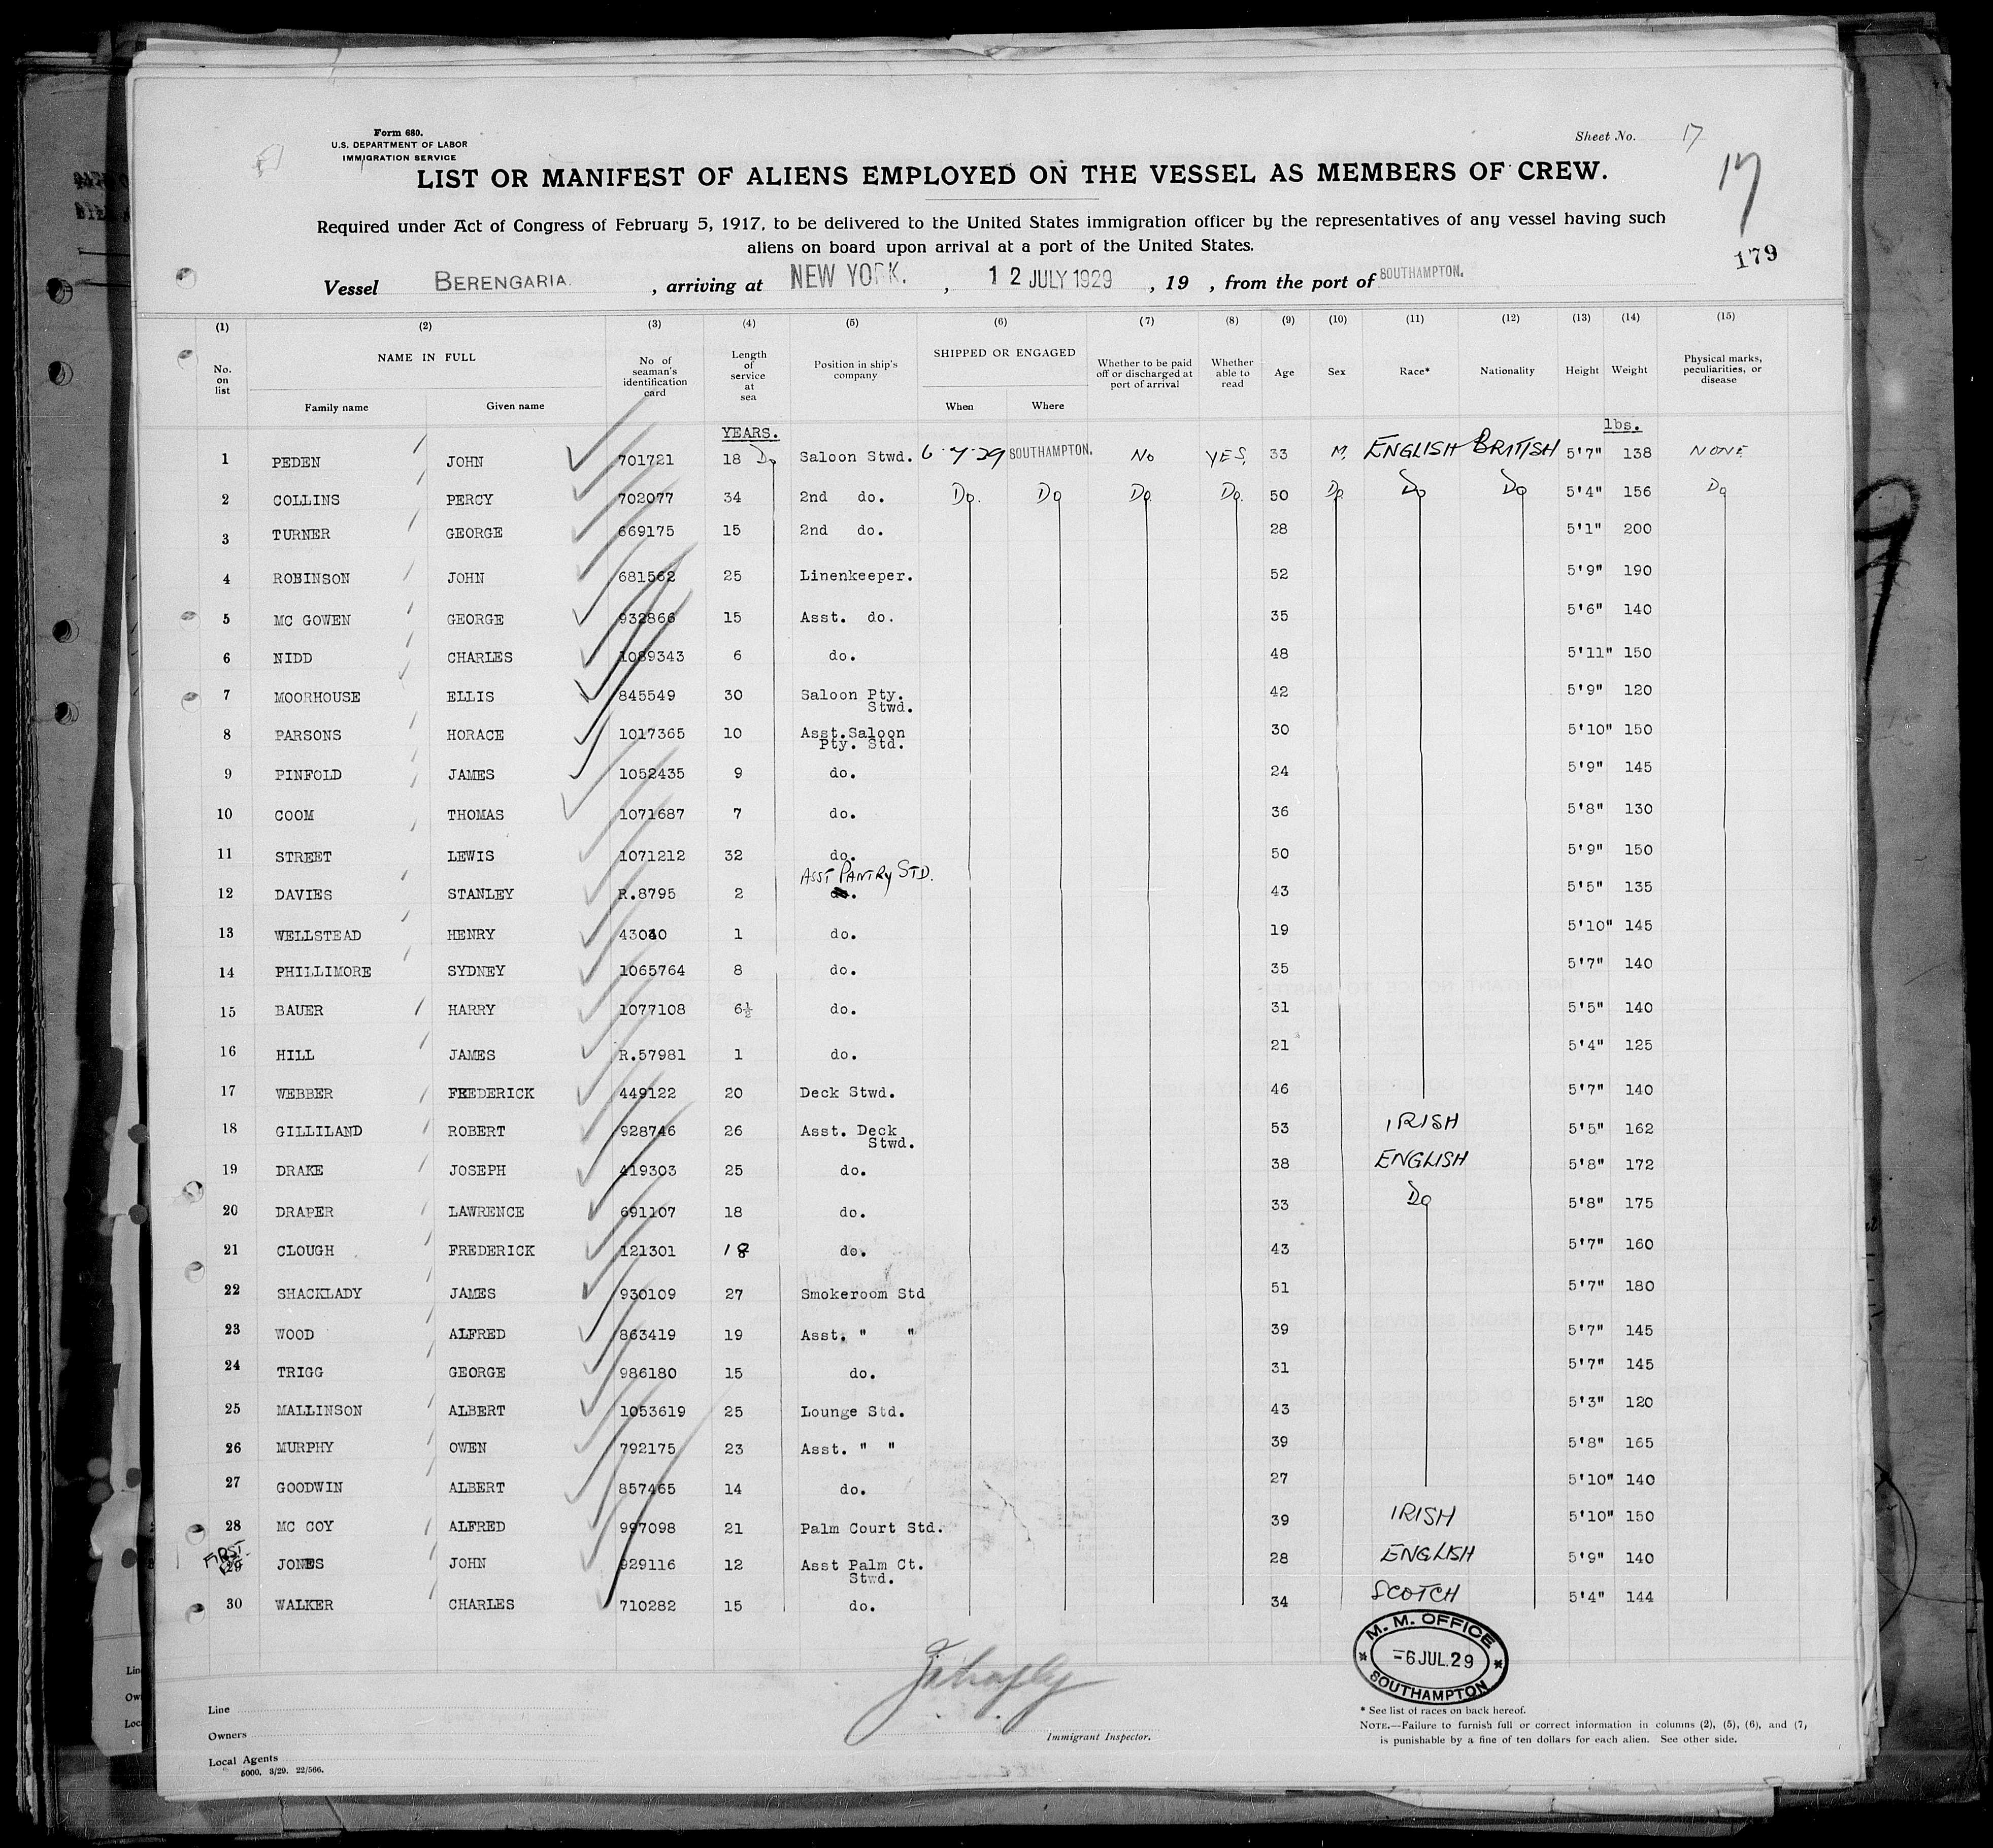 Form 680.
U.S. DEPARTMENT OF LABOR
IMMIGRATION SERVICE
Sheet No. 17
LIST OR MANIFEST OF ALIENS EMPLOYED ON THE VESSEL AS MEMBERS OF CREW.
17
Required under Act of Congress of February 5, 1917, to be delivered to the United States immigration officer by the representatives of any vessel having such
aliens on board upon arrival at a port of the United States.
179
Vessel BERENGARIA. , arriving at NEW YORK. , 12 JULY 1929 , 19 , from the port of SOUTHAMPTON.
(1) (2) (3) (4) (5) (6) (7) (8) (9) (10) (11) (12) (13) (14) (15)
No. on list NAME IN FULL Family name Given name No. of seaman's identification card Length of service at sea Position in ship's company SHIPPED OR ENGAGED When Where Whether to be paid off or discharged at port of arrival Whether able to read Age Sex Race* Nationality Height Weight Physical marks, peculiarities, or disease
YEARS. lbs.
1 PEDEN JOHN 701721 18 Do Saloon Stwd. 6-7-29 SOUTHAMPTON. No YES, 33 M. ENGLISH BRITISH 5'7" 138 NONE
2 COLLINS PERCY 702077 34 2nd do. Do. Do Do Do. 50 Do Do Do 5'4" 156 Do
3 TURNER GEORGE 669175 15 2nd do. 28 5'1" 200
4 ROBINSON JOHN 681562 25 Linenkeeper. 52 5'9" 190
5 MC GOWEN GEORGE 932866 15 Asst. do. 35 5'6" 140
6 NIDD CHARLES 1089343 6 do. 48 5'11" 150
7 MOORHOUSE ELLIS 845549 30 Saloon Pty. Stwd. 42 5'9" 120
8 PARSONS HORACE 1017365 10 Asst.Saloon Pty. Std. 30 5'10" 150
9 PINFOLD JAMES 1052435 9 do. 24 5'9" 145
10 COOM THOMAS 1071687 7 do. 36 5'8" 130
11 STREET LEWIS 1071212 32 do. 50 5'9" 150
ASST PANTRY STD.
12 DAVIES STANLEY R.8795 2 do. 43 5'5" 135
13 WELLSTEAD HENRY 1 do. 19 5'10" 145
14 PHILLIMORE SYDNEY 1065764 8 do. 35 5'7" 140
15 BAUER HARRY 1077108 6½ do. 31 5'5" 140
16 HILL JAMES R.57981 1 do. 21 5'4" 125
17 WEBBER FREDERICK 449122 20 Deck Stwd. 46 5'7" 140
18 GILLILAND ROBERT 928746 26 Asst. Deck Stwd. 53 IRISH 5'5" 162
19 DRAKE JOSEPH 419303 25 do. 38 ENGLISH 5'8" 172
20 DRAPER LAWRENCE 691107 18 do. 33 Do 5'8" 175
21 CLOUGH FREDERICK 121301 18 do. 43 5'7" 160
22 SHACKLADY JAMES 930109 27 Smokeroom Std 51 5'7" 180
23 WOOD ALFRED 863419 19 Asst. " " 39 5'7" 145
24 TRIGG GEORGE 986180 15 do. 31 5'7" 145
25 MALLINSON ALBERT 1053619 25 Lounge Std. 43 5'3" 120
26 MURPHY OWEN 792175 23 Asst. " " 39 5'8" 165
27 GOODWIN ALBERT 857465 14 do. 27 5'10" 140
28 MC COY ALFRED 997098 21 Palm Court Std. 39 IRISH 5'10" 150
FIRST
29 JONES JOHN 929116 12 Asst Palm Ct. Stwd. 28 ENGLISH 5'9" 140
30 WALKER CHARLES 710282 15 do. 34 SCOTCH 5'4" 144
M. M. OFFICE
-6 JUL.29
SOUTHAMPTON
Line
Owners
Local Agents
5000. 3/29. 22/566.
Immigrant Inspector.
* See list of races on back hereof.
NOTE.—Failure to furnish full or correct information in columns (2), (5), (6), and (7,
is punishable by a fine of ten dollars for each alien. See other side.